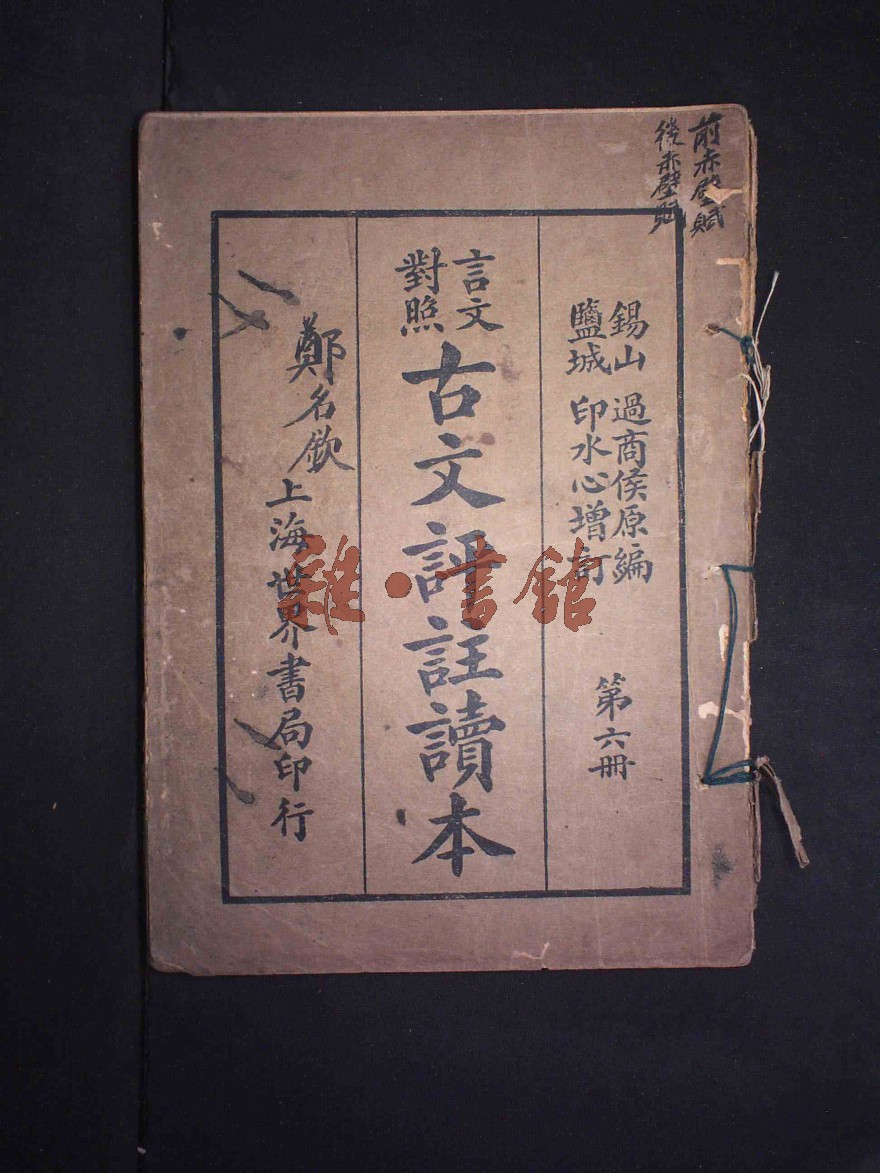 前赤壁賦
後赤壁賦
錫山 過商侯原編
鹽城 印水心增訂
第六冊
言文
對照
古文評註讀本
鄭名欽
上海世界書局印行
雜·書舘